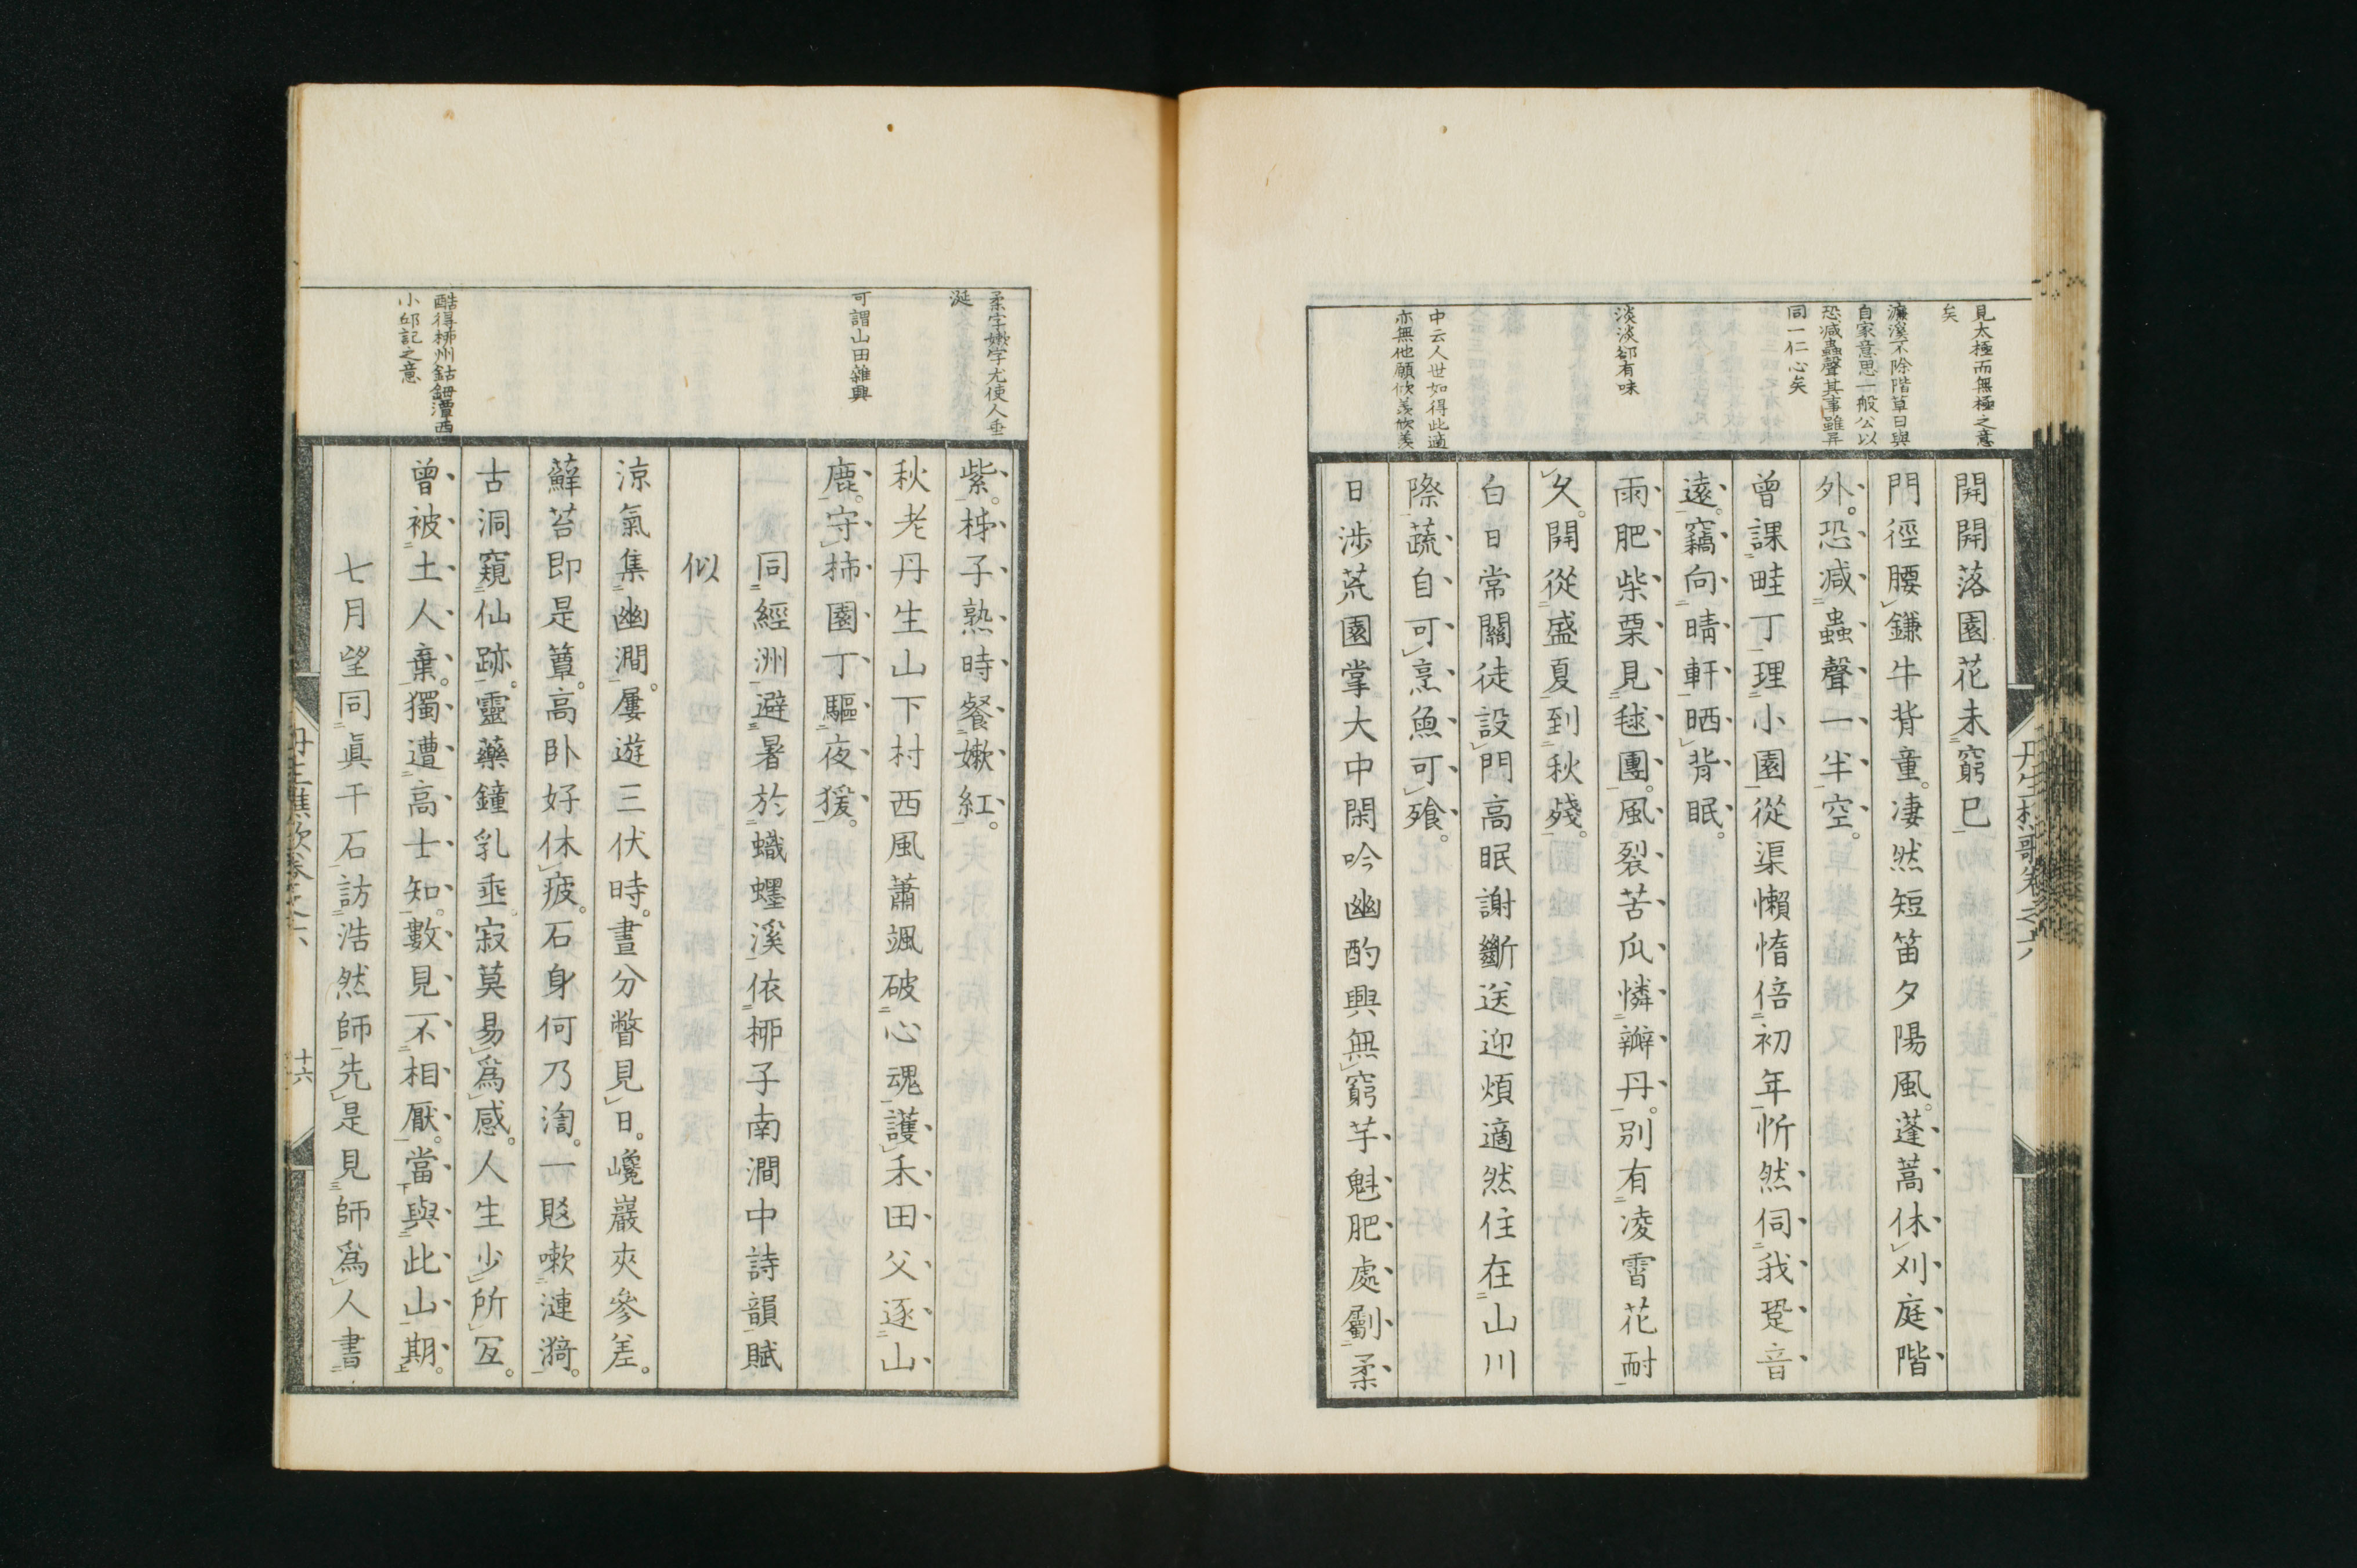 見太極而無極之意
矣
濂溪不除階草曰與
自家意思一般公以
恐減蟲聲其事雖异
同一仁心矣
淡淡郤有味
中云人世如得此適
亦無他願欣羨欣羨
開開落園花未窮已
門徑腰鎌牛背童。凄然短笛夕陽風。蓬蒿休刈庭階
外。恐減蟲聲一半空。
曾課畦丁理小園從渠懶惰倍初年忻然伺我跫音
遠。竊向晴軒晒背眠。
雨肥柴栗見毬團。風裂苦瓜憐瓣丹。別有凌霄花耐
久。開從盛夏到秋殘。
白日常關徒設門高眠謝斷送迎煩適然住在山川
際蔬自可烹魚可飱。
日涉荒園掌大中閑吟幽酌興無窮芋魁肥處劚柔
丹生樵歌卷之六
柔字嫩字尤使人垂
涎
可謂山田雜興
酷得柳州鈷鉧潭西
小邱記之意
紫。柹子熟時餐嫩紅。
秋老丹生山下村西風蕭颯破心魂護禾田父逐山
鹿。守柿園丁驅夜猨。
同經洲避暑於蟙䘃溪依柳子南澗中詩韻賦
似
涼氣集幽澗。屢遊三伏時。晝分瞥見日。巉巖夾參差。
蘚苔即是簟。高臥好休疲。石身何乃淘。一䀹嗽漣漪。
古洞窺仙跡。靈藥鐘乳垂。寂莫易爲感。人生少所宜。
曾被土人棄。獨遭高士知。數見不相厭。當與此山期。
七月望同眞干石訪浩然師先是見師爲人書
丹生樵歌卷之六
十六